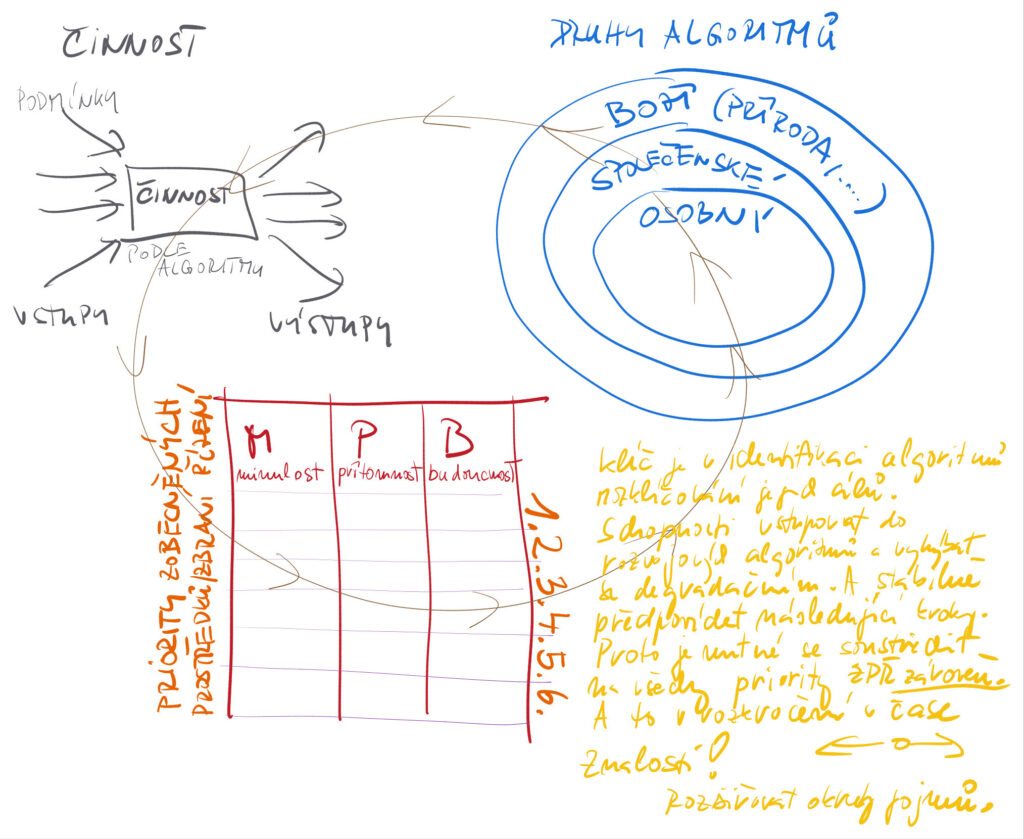 ČINNOST
PODMÍNKY
ČINNOST
PODLE
ALGORITMU
VSTUPY
VÝSTUPY
DRUHY ALGORITMŮ
BOŽÍ (PŘÍRODA,....)
SPOLEČENSKÉ
OSOBNÍ
PRIORITY ZOBECNĚNÝCH
PROSTŘEDKŮ/ZBRANÍ ŘÍZENÍ
M P B
minulost přítomnost budoucnost
1.2.3.4.5.6.
klíč je v identifikaci algoritmů
rozklíčování jejich cílů.
Schopnosti vstupovat do
rozvojových algoritmů a vyhýbat
se degradačním. A stabilně
předpovídat následující kroky.
Proto je nutné se soustředit
na všechny priority ZPŘ zároveň.
A to v rozkročení v čase
Znalosti!
Rozšiřovat okruhy pojmů.